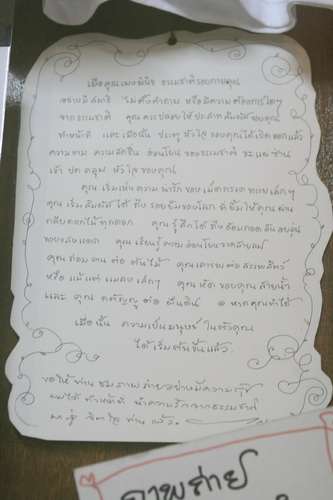 เมื่อคุณเพ่งพินิจ ธรรมชาติรอบกายคุณ
อย่างมีสมาธิ ไม่ตั้งคำถาม หรือมีความต้องการใดๆ
จากธรรมชาติ คุณควรปล่อยให้ประสาทสัมผัสของคุณ
ทำหน้าที่ และเมื่อนั้น ประตูหัวใจของคุณได้เปิดออกแล้ว
ความงาม ความสดชื่น อ่อนโยนของธรรมชาติ จะแผ่ซ่าน
เข้าปกคลุมหัวใจของคุณ
คุณเริ่มเห็นความน่ารักของเม็ดกรวดทรายเล็กๆ
คุณเริ่มสัมผัสได้ถึงรอยยิ้มของโลก ที่ยิ้มให้คุณผ่าน
กลีบดอกไม้ทุกดอก คุณรู้สึกได้ถึงอ้อมกอดอันอบอุ่น
ของแสงแดด คุณเรียนรู้ความอ่อนโยนจากสายลม
คุณก้อมงาน ต่อต้นไม้ คุณเคารพต่อสรรพสัตว์
หรือแม้แต่แมลงเล็กๆ คุณของคุณสายน้ำ
และคุณกตัญญูต่อผืนดิน หากคุณทำได้
เมื่อนั้น ความเป็นมนุษย์ในตัวคุณ
ได้เริ่มต้นขึ้นแล้ว.
ขอให้ท่านชมภาพถ่ายอย่างมีความสุข
ผมได้ทำหน้าที่ นำความรักจากธรรมชาติ
จิตใจท่านแล้ว.
ภาพถ่าย